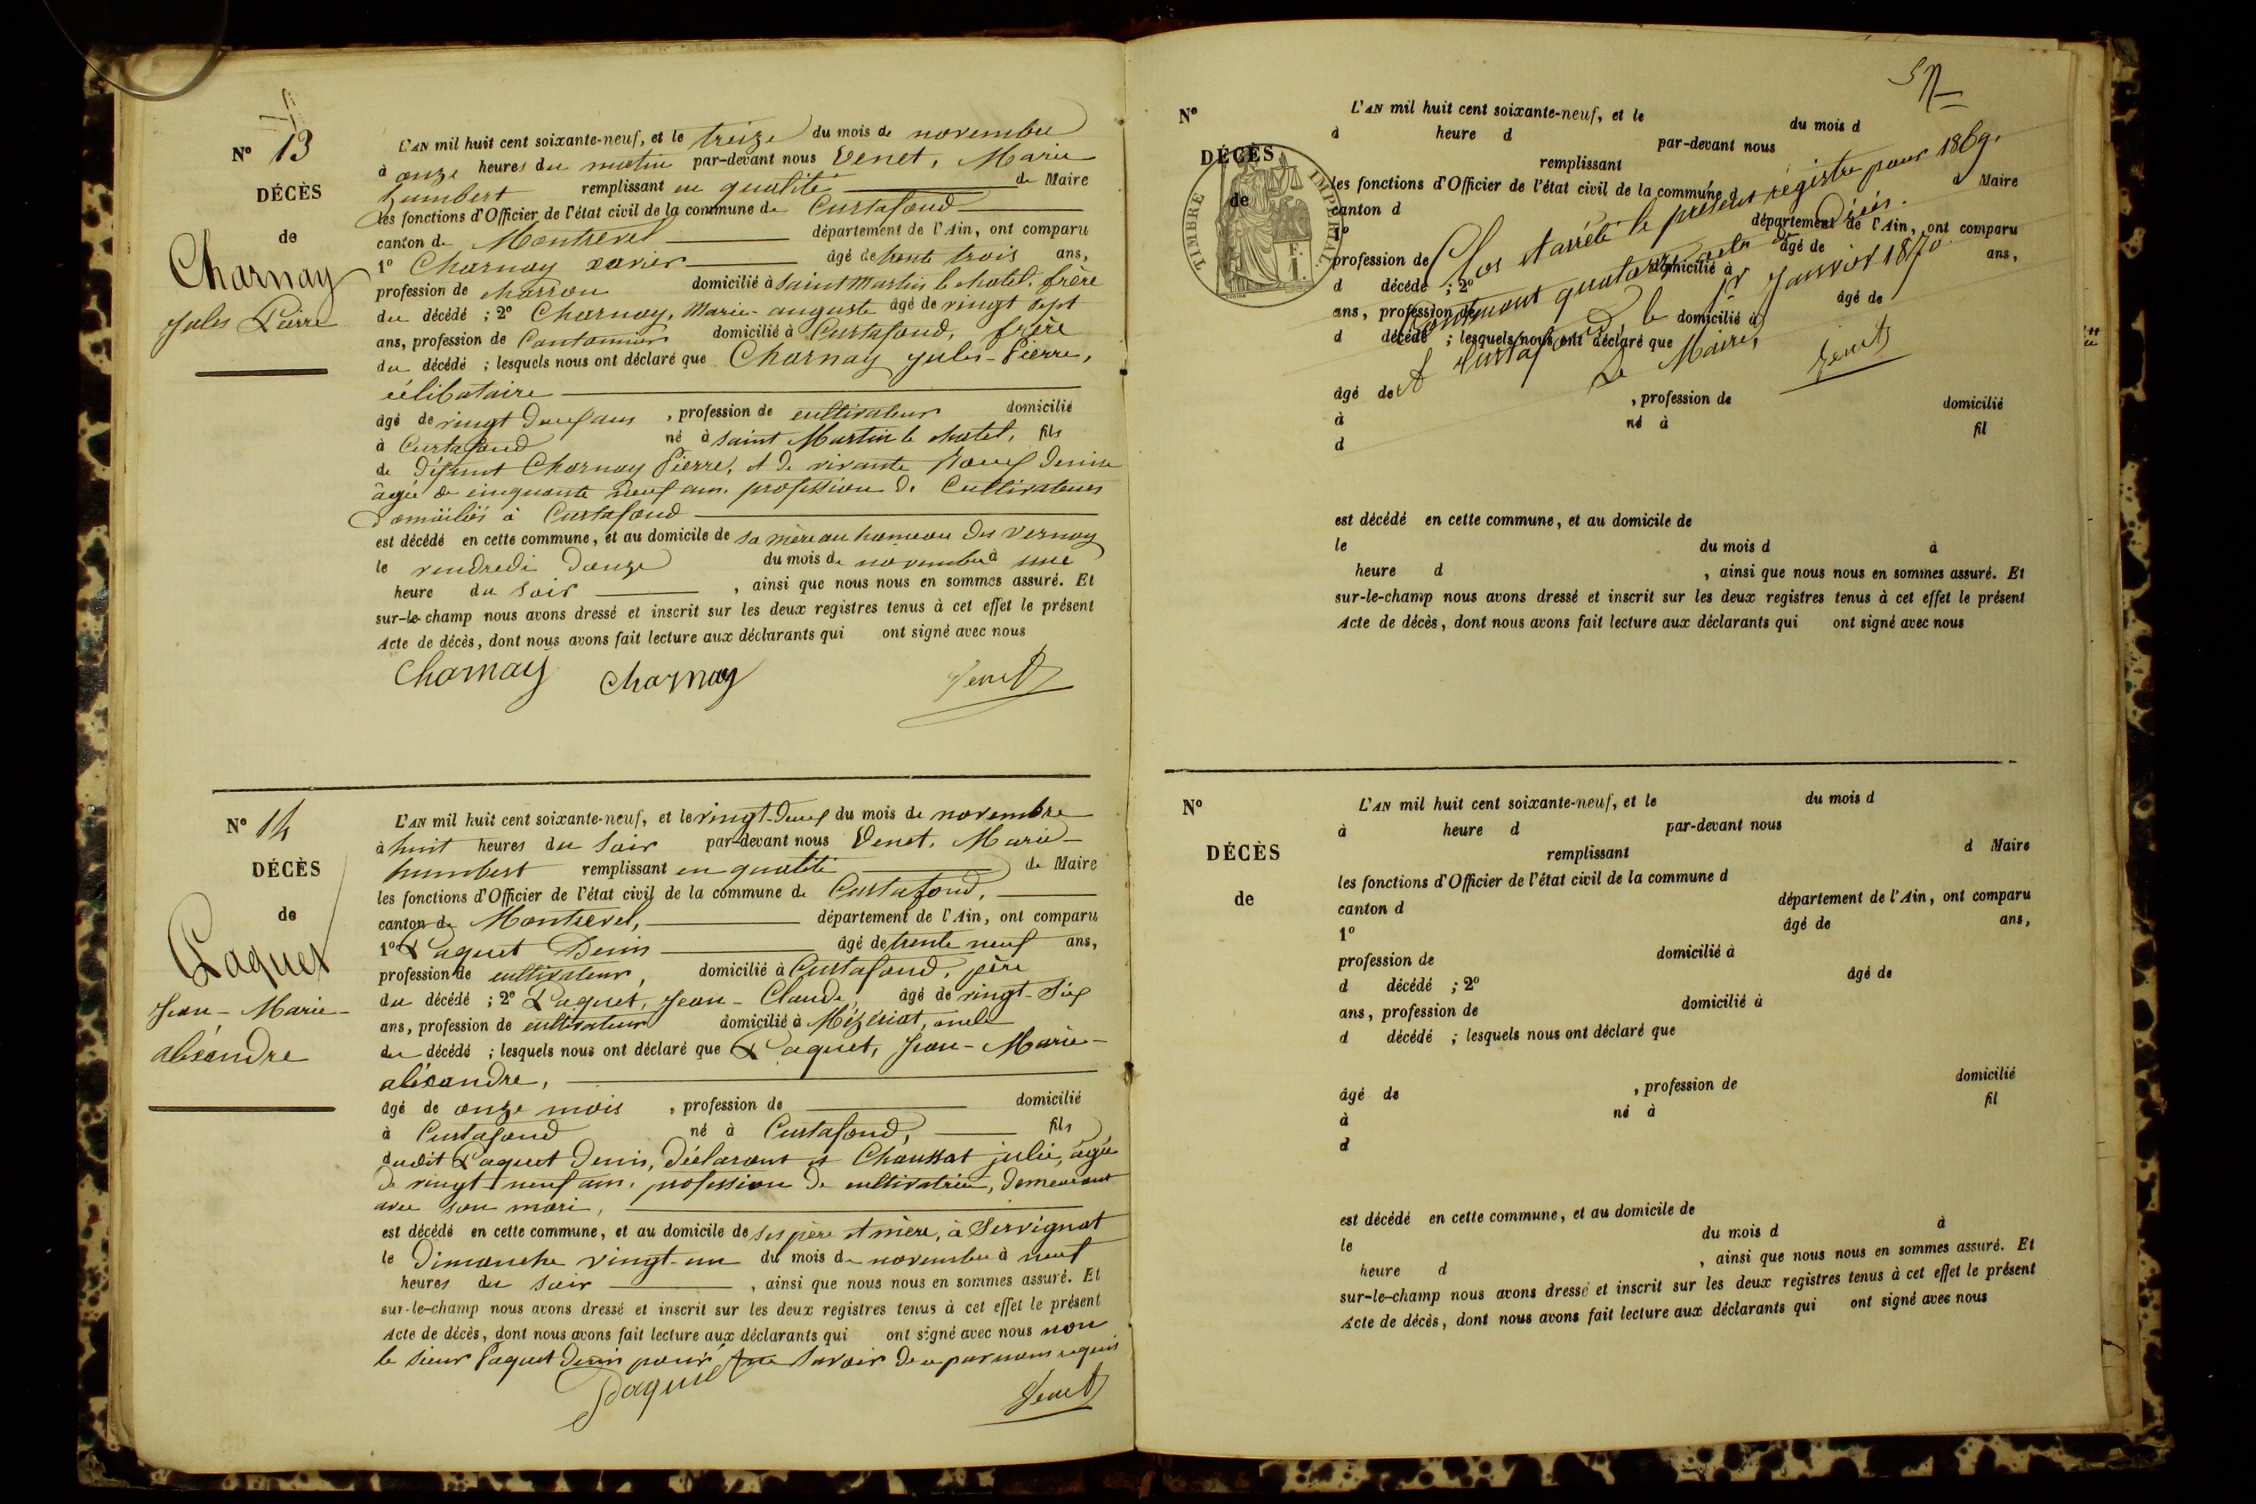 N° 13
DÉCÈS
de
Charnay
Jules Pierre
L'AN mil huit cent soixante-neuf, et le treize du mois de novembre
à onze heures du matin par-devant nous Venet, Marie
humbert remplissant en qualité de Maire
les fonctions d'Officier de l'état civil de la commune de Curtafond
canton de Montrevel département de l'Ain, ont comparu
1° Charnay xavier âgé de trente trois ans,
profession de charron domicilié à Saint Martin le chatel, frère
du décédé ; 2° Charnay, Marie-auguste âgé de vingt sept
ans, profession de Cantonnier domicilié à Curtafond, frère
du décédé ; lesquels nous ont déclaré que Charnay Jules-Pierre,
célibataire
âgé de vingt deux ans , profession de cultivateur domicilié
à Curtafond né à saint Martin le chatel, fils
de défunt Charnay Pierre, et de vivante Denise
âgée de cinquante neuf ans, profession de Cultivateurs
domiciliés à Curtafond
est décédé en cette commune, et au domicile de sa mère au hameau des Vernay
le vendredi douze du mois de novembre à une
heure du soir , ainsi que nous nous en sommes assuré. Et
sur-le-champ nous avons dressé et inscrit sur les deux registres tenus à cet effet le présent
Acte de décès, dont nous avons fait lecture aux déclarants qui ont signé avec nous
Charnay Charnay Venet
N° 14
DÉCÈS
de
Paquet
Jean-Marie-
aléxandre
L'AN mil huit cent soixante-neuf, et le vingt-deux du mois de novembre
à huit heures du soir par-devant nous Venet, Marie-
humbert remplissant en qualité de Maire
les fonctions d'Officier de l'état civil de la commune de Curtafond,
canton de Montrevel, département de l'Ain, ont comparu
1° Paquet Denis âgé de trente neuf ans,
profession de cultivateur, domicilié à Curtafond, père
du décédé ; 2° Paquet, Jean-Claude, âgé de vingt-six
ans, profession de cultivateur domicilié à Mézériat, oncle
du décédé ; lesquels nous ont déclaré que Paquet, Jean-Marie-
aléxandre,
âgé de onze mois , profession de domicilié
à Curtafond né à Curtafond, fils
dudit Paquet Denis, déclarant et Chaussat julie, âgée
de vingt-neuf ans, profession de cultivatrice, demeurant
avec son mari,
est décédé en cette commune, et au domicile de ses père et mère, à Servignat
le Dimanche vingt-un du mois de novembre à neuf
heures du soir , ainsi que nous nous en sommes assuré. Et
sur-le-champ nous avons dressé et inscrit sur les deux registres tenus à cet effet le présent
Acte de décès, dont nous avons fait lecture aux déclarants qui ont signé avec nous non
le sieur Paquet Denis pour savoir de ce par nous requis
Paquet Venet
N°
DÉCÈS
de
TIMBRE IMPÉRIAL
F. 1.
L'AN mil huit cent soixante-neuf, et le du mois d
à heure d par-devant nous
remplissant d Maire
les fonctions d'Officier de l'état civil de la commune d
canton d département de l'Ain, ont comparu
1° âgé de ans,
profession de domicilié à
d décédé ; 2° âgé de
ans, profession de domicilié à
d décédé ; lesquels nous ont déclaré que
Clos et arrêté le présent registre pour 1869.
Contenant quatorze actes de Décès.
A Curtafond le 1er Janvier 1870
Le Maire,
Venet
âgé de , profession de domicilié
à né à fil
d
est décédé en cette commune, et au domicile de
le du mois d à
heure d , ainsi que nous nous en sommes assuré. Et
sur-le-champ nous avons dressé et inscrit sur les deux registres tenus à cet effet le présent
Acte de décès, dont nous avons fait lecture aux déclarants qui ont signé avec nous
N°
DÉCÈS
de
L'AN mil huit cent soixante-neuf, et le du mois d
à heure d par-devant nous
remplissant d Maire
les fonctions d'Officier de l'état civil de la commune d
canton d département de l'Ain, ont comparu
1° âgé de ans,
profession de domicilié à
d décédé ; 2° âgé de
ans, profession de domicilié à
d décédé ; lesquels nous ont déclaré que
âgé de , profession de domicilié
à né à fil
d
est décédé en cette commune, et au domicile de
le du mois d à
heure d , ainsi que nous nous en sommes assuré. Et
sur-le-champ nous avons dressé et inscrit sur les deux registres tenus à cet effet le présent
Acte de décès, dont nous avons fait lecture aux déclarants qui ont signé avec nous